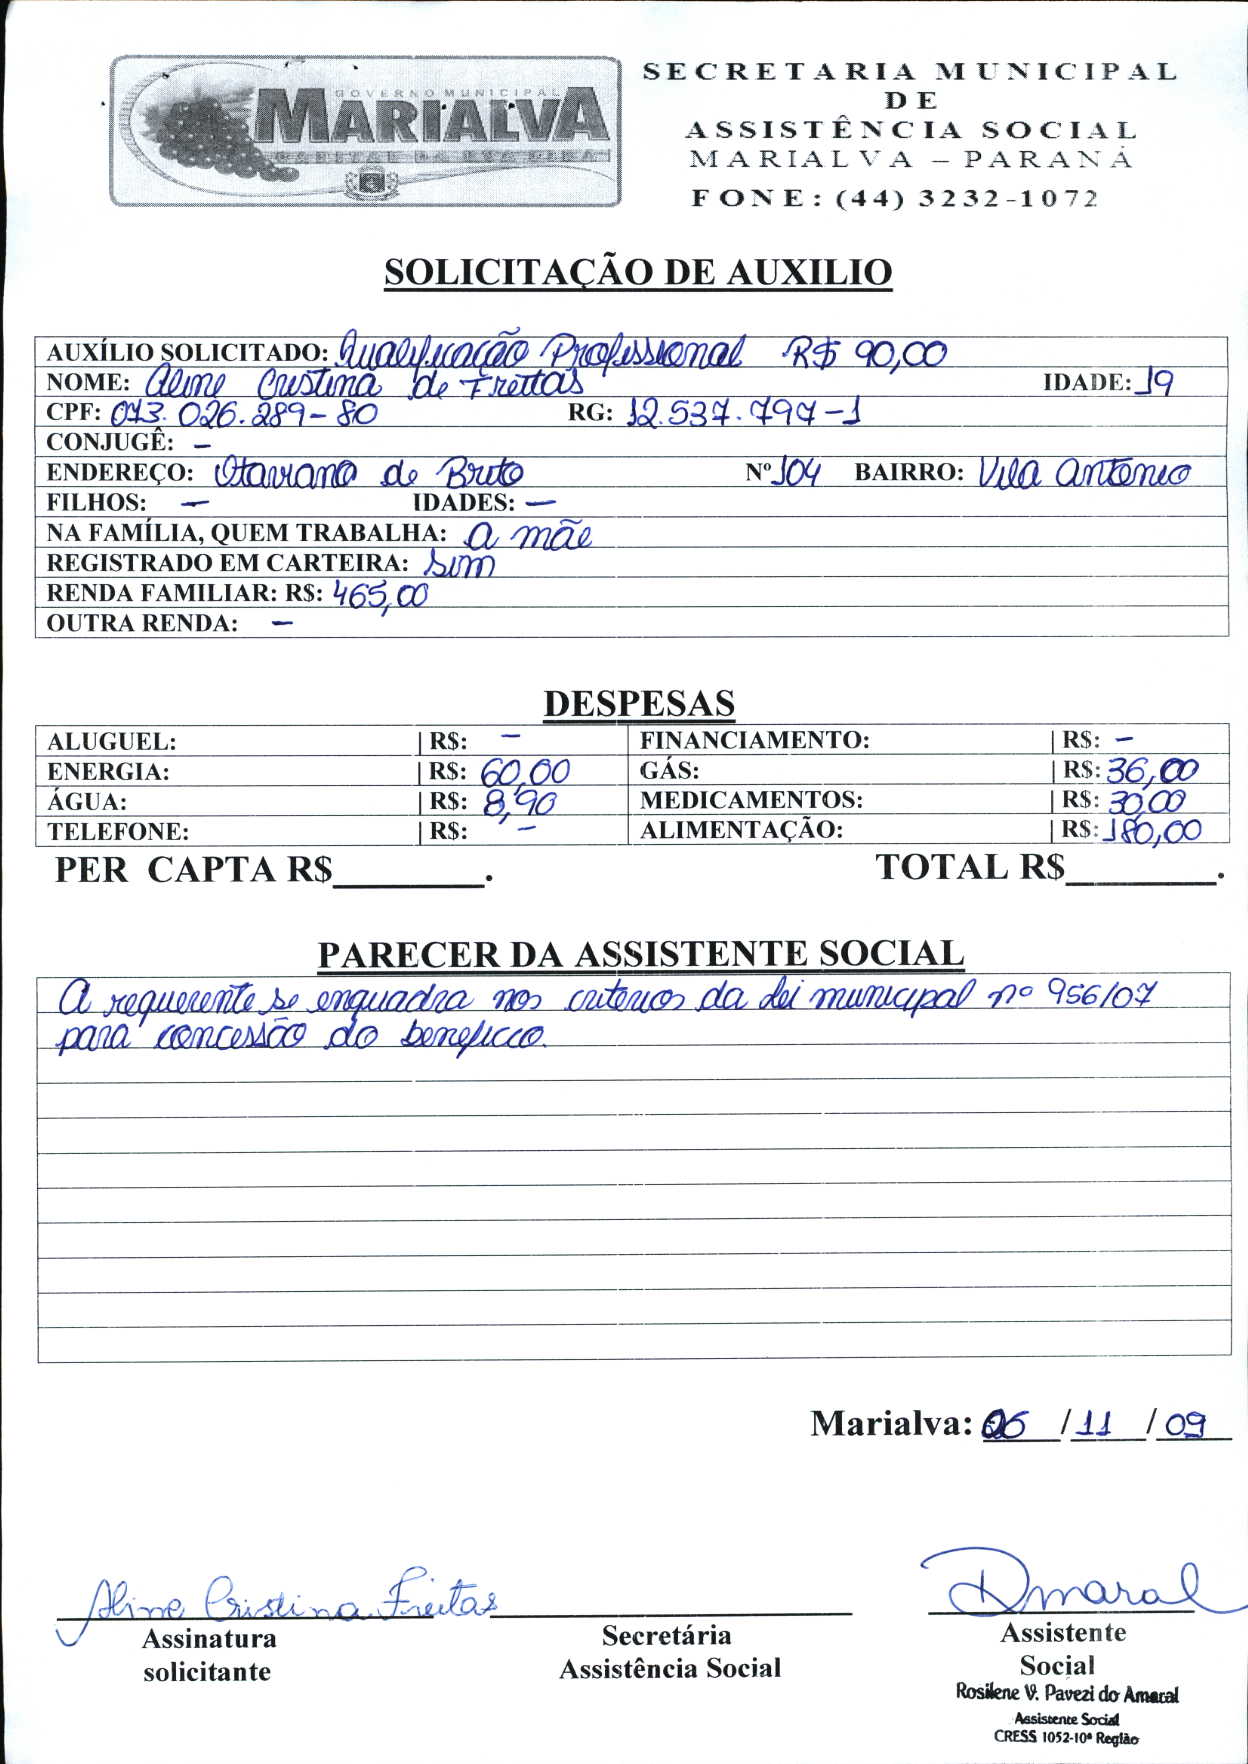 GOVERNO MUNICIPAL
MARIALVA
CAPITAL DA UVA FINA
SECRETARIA MUNICIPAL
DE
ASSISTÊNCIA SOCIAL
MARIALVA – PARANÁ
FONE: (44) 3232-1072
SOLICITAÇÃO DE AUXILIO
AUXÍLIO SOLICITADO: Qualificação Profissional R$ 90,00
NOME: Aline Cristina de Freitas IDADE: 19
CPF: 073.026.289-80 RG: 12.537.797-1
CONJUGÊ: –
ENDEREÇO: Otaviano de Brito Nº 104 BAIRRO: Vila Antonio
FILHOS: – IDADES: –
NA FAMÍLIA, QUEM TRABALHA: A mãe
REGISTRADO EM CARTEIRA: sim
RENDA FAMILIAR: R$: 465,00
OUTRA RENDA: –
DESPESAS
ALUGUEL: | R$: – FINANCIAMENTO: | R$: –
ENERGIA: | R$: 60,00 GÁS: | R$: 36,00
ÁGUA: | R$: 8,90 MEDICAMENTOS: | R$: 30,00
TELEFONE: | R$: – ALIMENTAÇÃO: | R$: 180,00
PER CAPTA R$________. TOTAL R$________.
PARECER DA ASSISTENTE SOCIAL
A requerente se enquadra nos criterios da Lei municipal nº 956/07
para concessão do beneficio.
Marialva: 06 / 11 / 09
Aline Cristina Freitas Dmaral
Assinatura Secretária Assistente
solicitante Assistência Social Social
Rosilene V. Pavezi do Amaral
Assistente Social
CRESS 1052-10ª Região